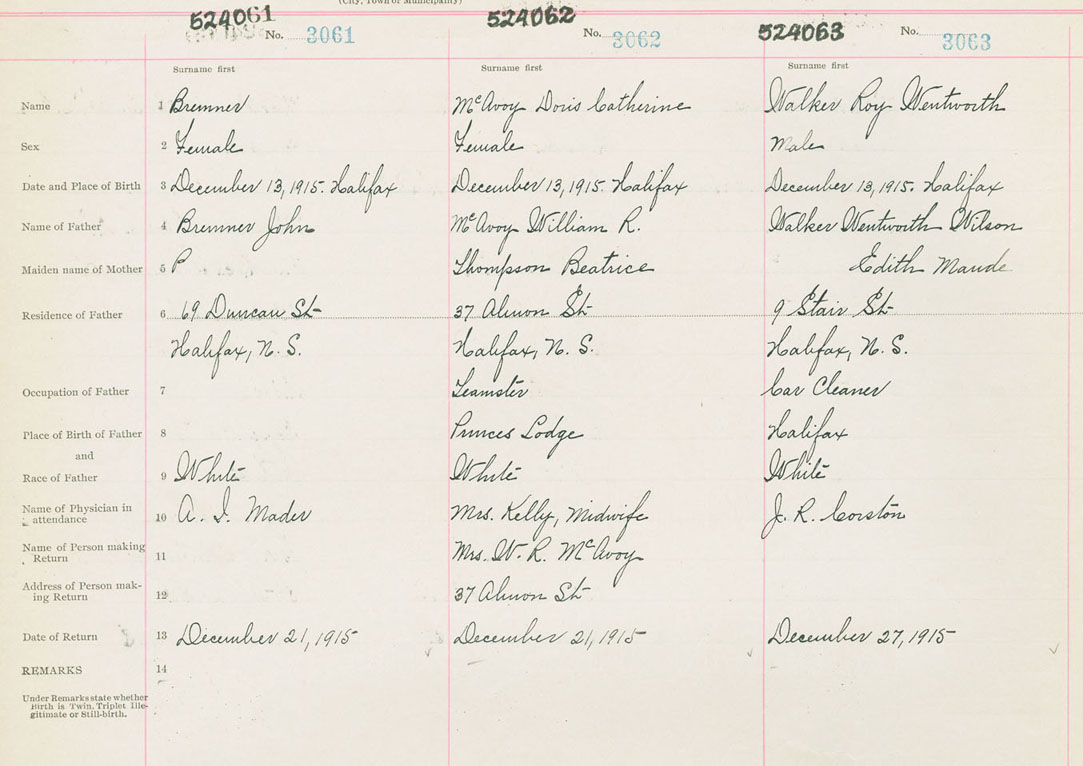 (City, Town or Municipality)
524061 524062 524063
No. 3061 No. 3062 No. 3063
Surname first Surname first Surname first
Name 1 Bremner McAvoy Doris Catherine Walker Roy Wentworth
Sex 2 Female Female Male
Date and Place of Birth 3 December 13, 1915. Halifax December 13, 1915. Halifax December 13, 1915. Halifax
Name of Father 4 Bremner John McAvoy William R. Walker Wentworth Wilson
Maiden name of Mother 5 P Thompson Beatrice Edith Maude
Residence of Father 6 69 Duncan St- 37 Almon St- 9 Stair St-
Halifax, N. S. Halifax, N. S. Halifax, N. S.
Occupation of Father 7 Teamster Car Cleaner
Place of Birth of Father 8 Princes Lodge Halifax
and
Race of Father 9 White White White
Name of Physician in
attendance 10 A. I. Mader Mrs. Kelly, Midwife J. R. Corston
Name of Person making
Return 11 Mrs. W. R. McAvoy
Address of Person mak-
ing Return 12 37 Almon St-
Date of Return 13 December 21, 1915 December 21, 1915 December 27, 1915
REMARKS 14
Under Remarks state whether
Birth is Twin, Triplet Ille-
gitimate or Still-birth.